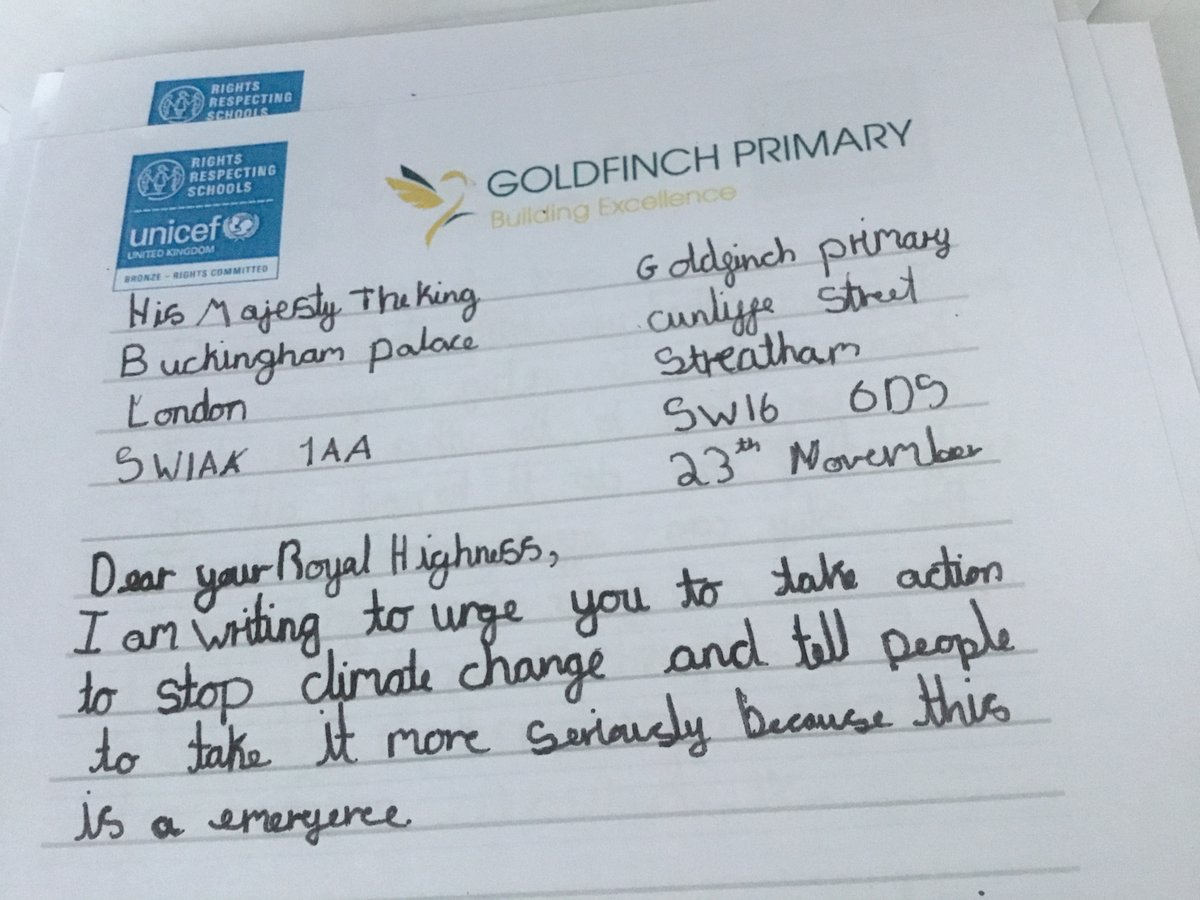 RIGHTS
RESPECTING
SCHOOLS
RIGHTS
RESPECTING
SCHOOLS
unicef
UNITED KINGDOM
BRONZE – RIGHTS COMMITTED
GOLDFINCH PRIMARY
Building Excellence
His Majesty The King
Buckingham palace
London
SW1AK 1AA
Goldginch primary
cunligge street
Streatham
SW16 6DS
23th November
Dear your Royal Highness,
I am writing to urge you to take action
to stop climate change and tell people
to take it more seriously because this
is a emergerce